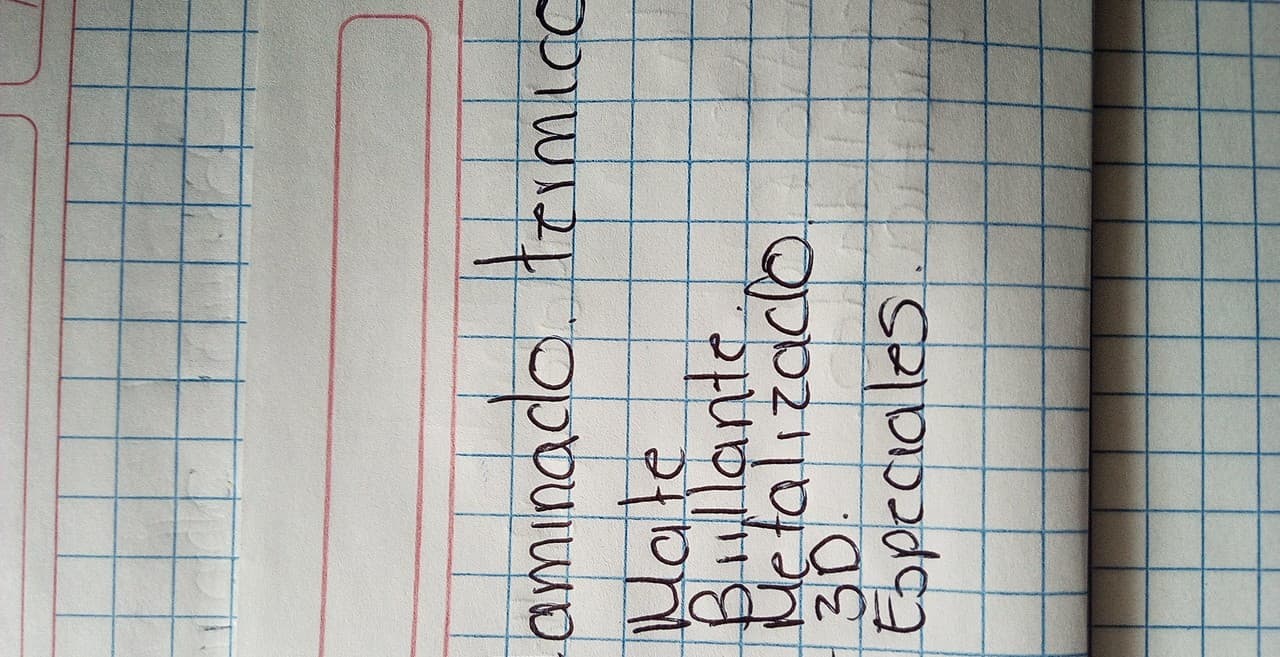 aminado. termico
Mate
Brillante.
Metalizado.
3D.
Especiales.